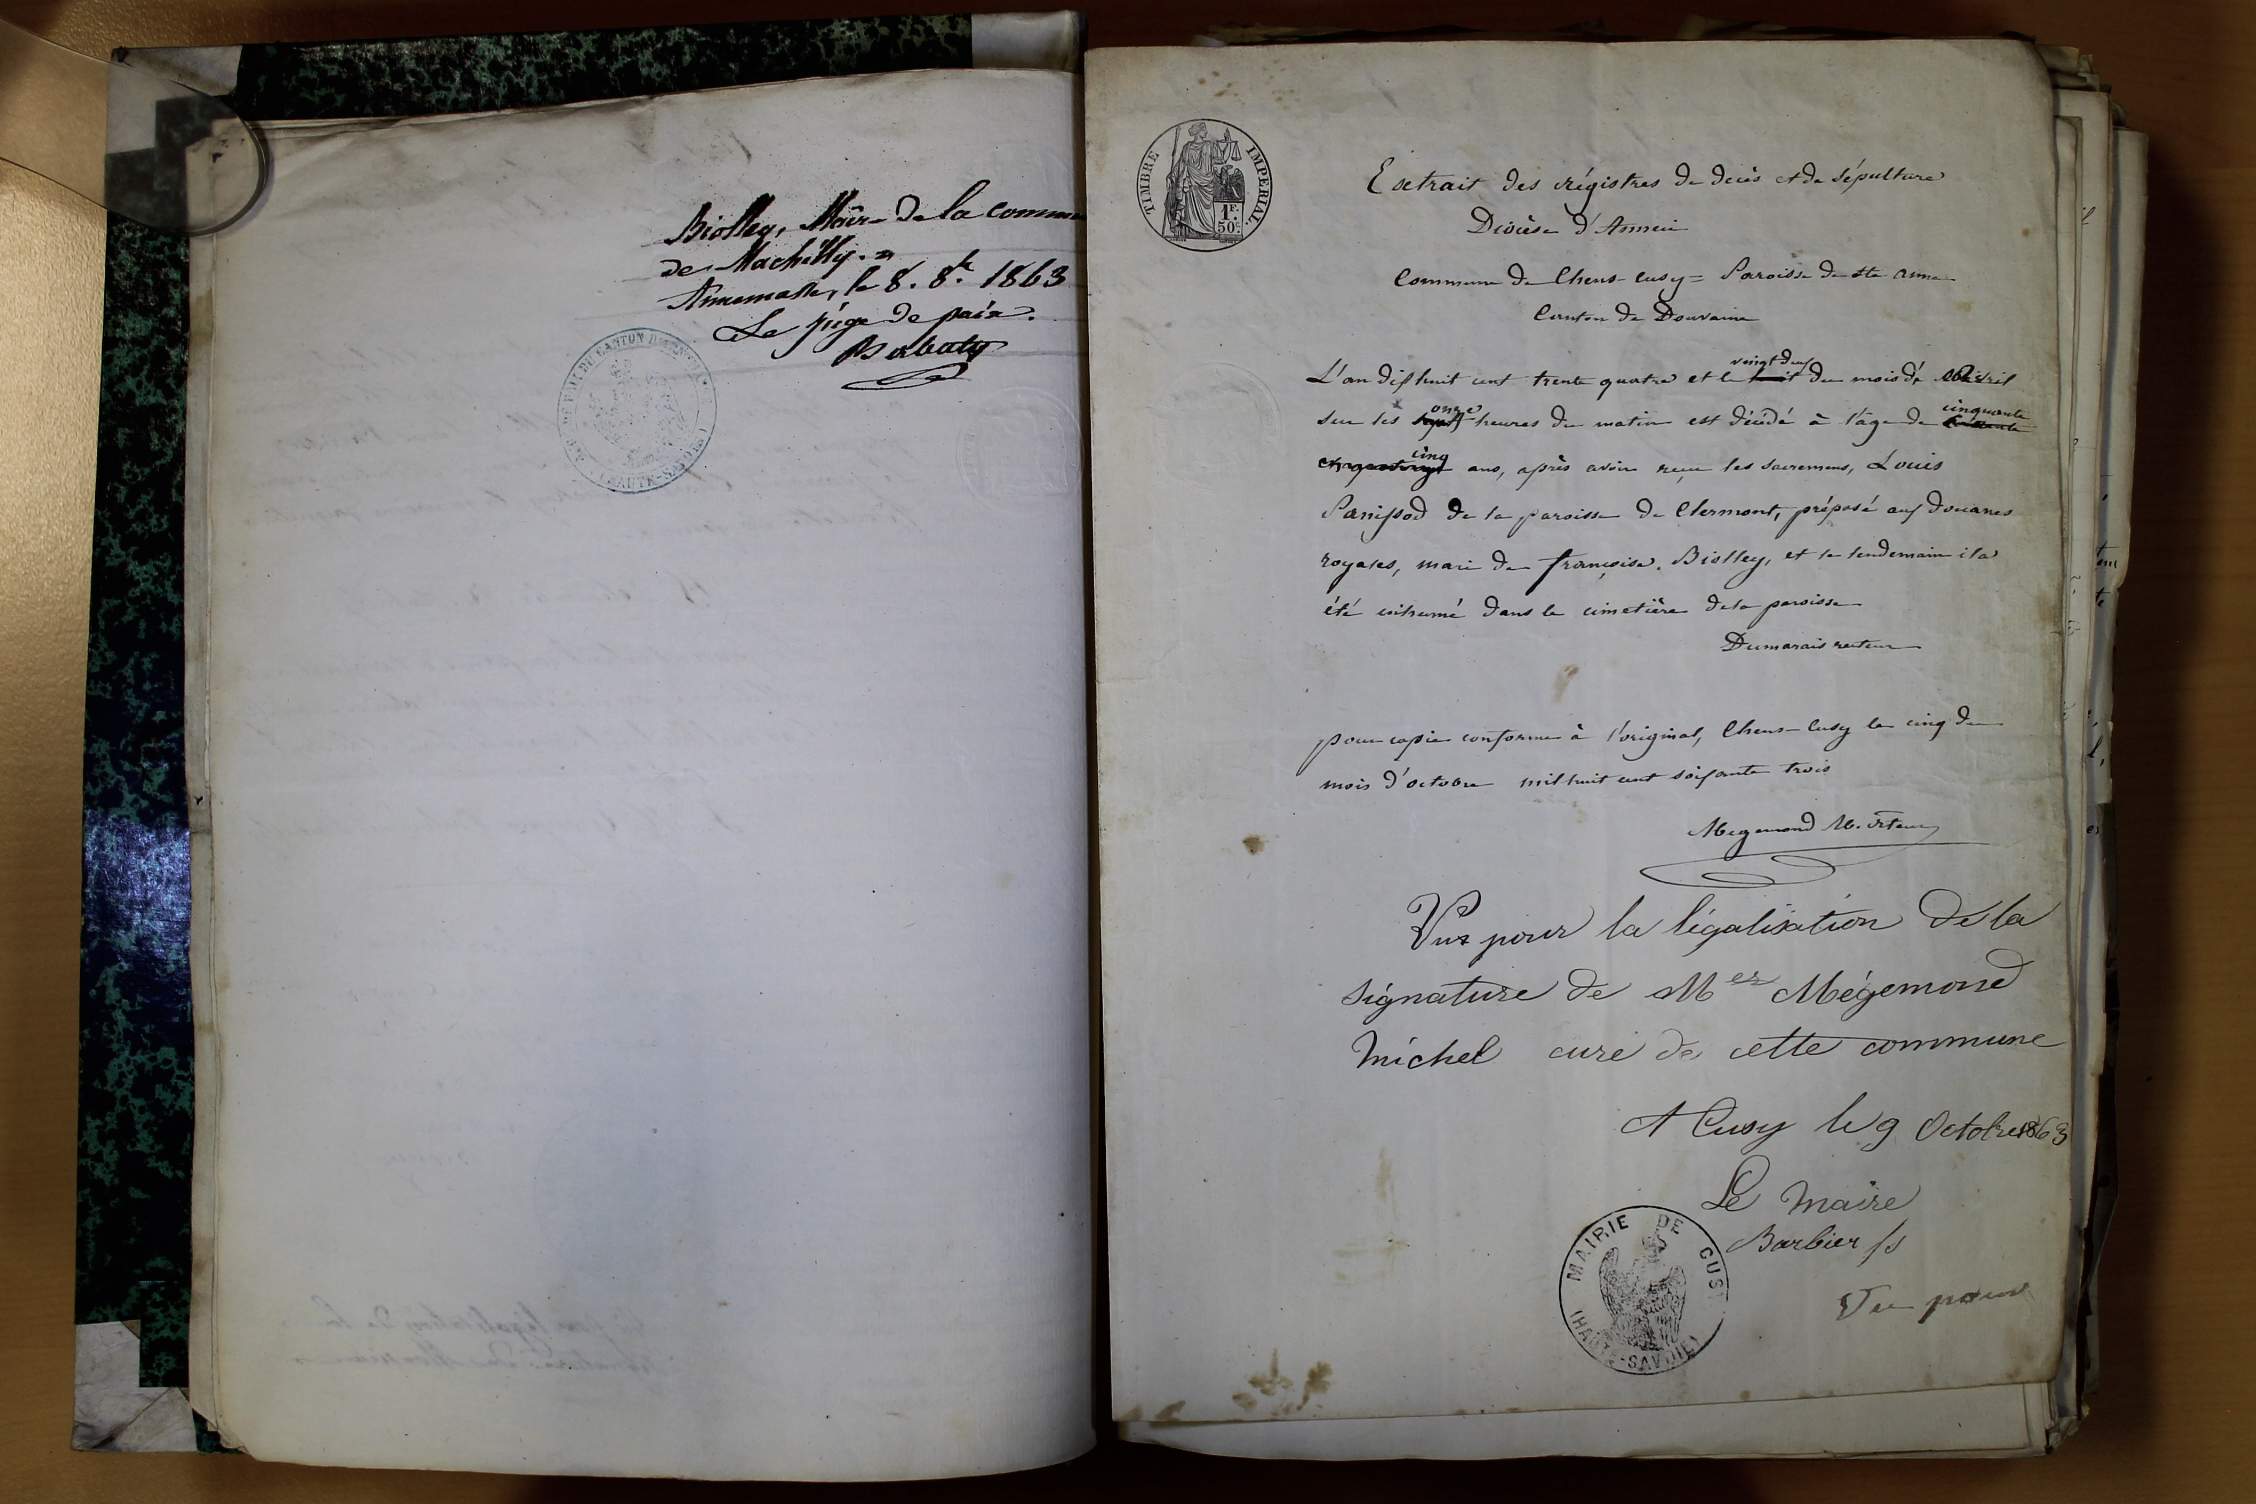 Biolley, Maire de la commu
de Machilly.
Annemasse, le 8. 8bre 1863
Le juge de paix.
TIMBRE IMPERIAL
1F.
50c.
Extrait des régistres de decès et de sépulture
Diocèse d'Anneci
Commune de Chens-Cusy = Paroisse de Ste Anne
Canton de Douvaine
vingt deux
L'an dix huit cent trente quatre et le huit du mois d' avril
onze cinquante
sur les sept heures du matin est décédé à l'âge de
cinq
ans, après avoir reçu les sacremens, Louis
Panissod de la paroisse de Clermont, préposé aux douanes
royales, mari de françoise Biolley, et le lendemain il a
été inhumé dans le cimetière de la paroisse
Dumarais recteur
pour copie conforme à l'original, Chens-Cusy le cinq du
mois d'octobre mil huit cent soixante trois
Megemond M. rteur
Vue pour la légalisation de la
signature de Mer Mégemond
Michel curé de cette commune
A Cusy le 9 Octobre 1863
Le Maire
Barbier
MAIRIE DE CUSY
(HAUTE-SAVOIE)
Vu pour